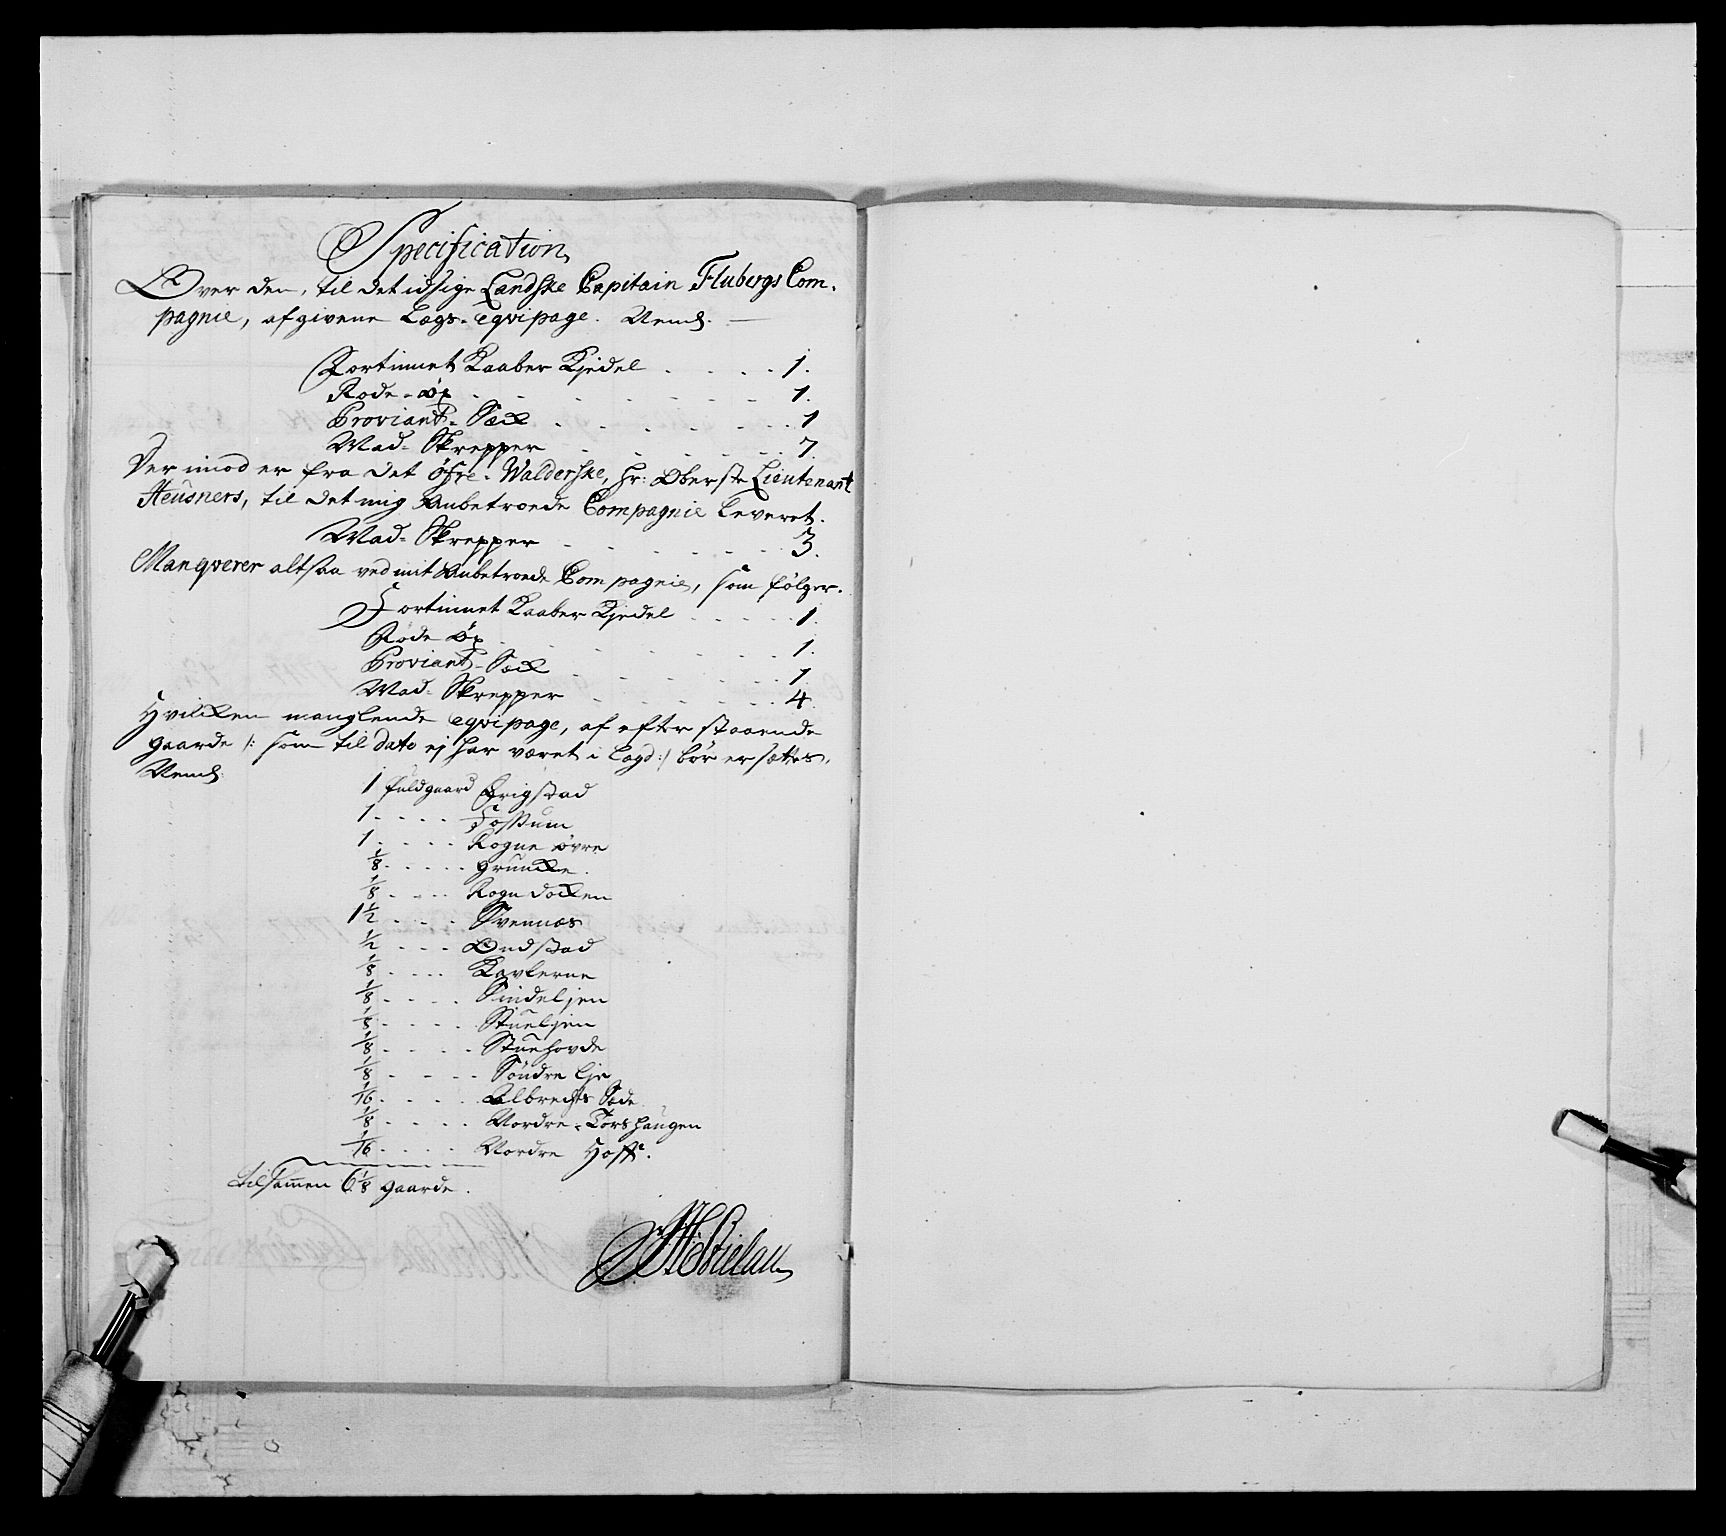 Specification
Over den, til det idsige Landske Capitain Flubergs Com-
pagnie, afgivene Lægs-Eqvipage. Neml.
Fortinnet Kaaber Kjedel . . . . . 1.
Rode-øx . . . . . . . 1.
Proviant-Sæck . . . . . . . 1
Mad-Skrepper . . . . . . . 7.
Der imod er fra det Øfre-Walderske, Hr: Oberste Lieutenant
Heusners, til det mig Anbetroede Compagnie leveret.
Mad-Skrepper . . . . . . 3.
Manqverer altsaa ved mit Anbetroede Compagnie, som følger.
Fortinnet Kaaber Kjedel . . . . . 1.
Röde øx . . . . . . . 1.
Proviant-Sæck . . . . . . 1
Mad-Skrepper . . . . . . 4.
Hvilcken manglende eqvipage, af efterstaaende
gaarde /: som til dato ej har været i Lægd :/ bör ersættes,
Neml:
1 fuldgaard Grigstad
1 . . . . Fossum
1 . . . . Rogne øvre
1/8 . . . . Gruncke.
1/8 . . . . Rogndocken
1 1/2 . . . . Svennæs
1/2 . . . Ondstad
1/8 . . . . Kavlerne
1/8 . . . . Sindeljen
1/8 . . . . Stueljen
1/8 . . . . Stuehovde
1/8 . . . . Söndre Lje
1/16 . . . . Albrechts Sæde
1/8 . . . . Nordre-Torshaugen
1/16 . . . . Nordre Hoff.
tilsammen 6 1/8 gaarde.